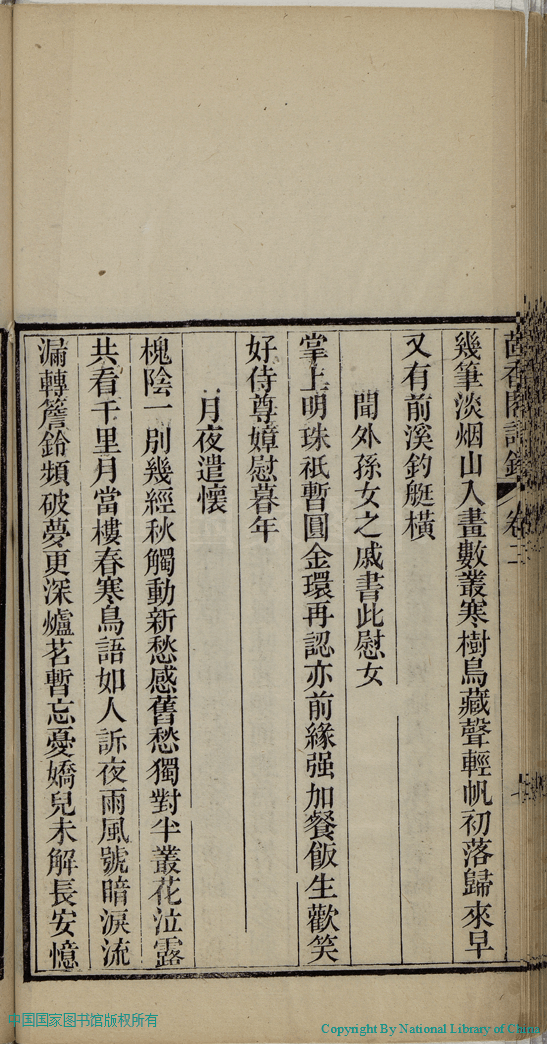 茝香閣詩鈔 卷二
幾筆淡烟山入畫數叢寒樹鳥藏聲輕帆初落歸來早
又有前溪釣艇橫
聞外孫女之戚書此慰女
掌上明珠祇暫圓金環再認亦前緣强加餐飯生歡笑
好侍尊嫜慰暮年
月夜遣懷
槐陰一別幾經秋觸動新愁感舊愁獨對半叢花泣露
共看千里月當樓春寒鳥語如人訴夜雨風號暗淚流
漏轉簷鈴頻破夢更深爐茗暫忘憂嬌兒未解長安憶
中国国家图书馆版权所有
Copyright By National Library of China